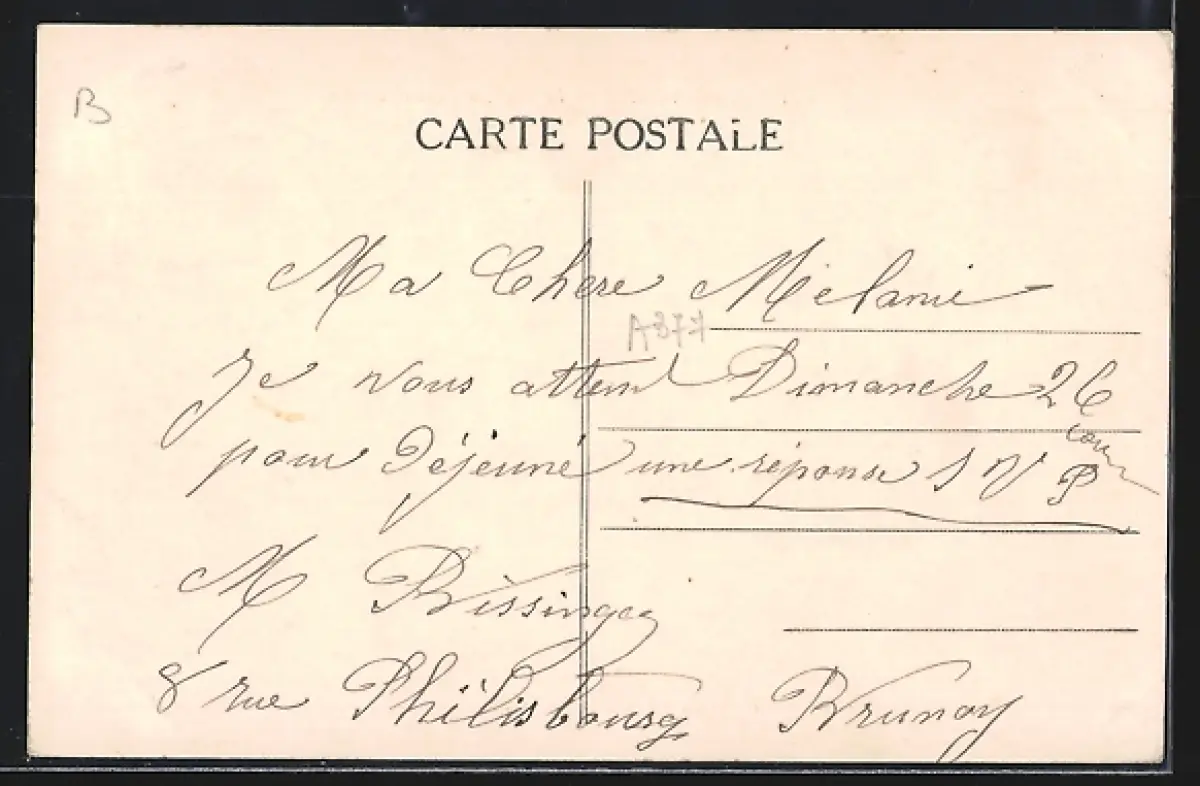 B
CARTE POSTALE
Ma Chere Mélanie
A377
Je vous attend Dimanche 26
courr
pour Déjeuné une réponse S V P
M Bissinger
8 rue Philisbourg Brunoy